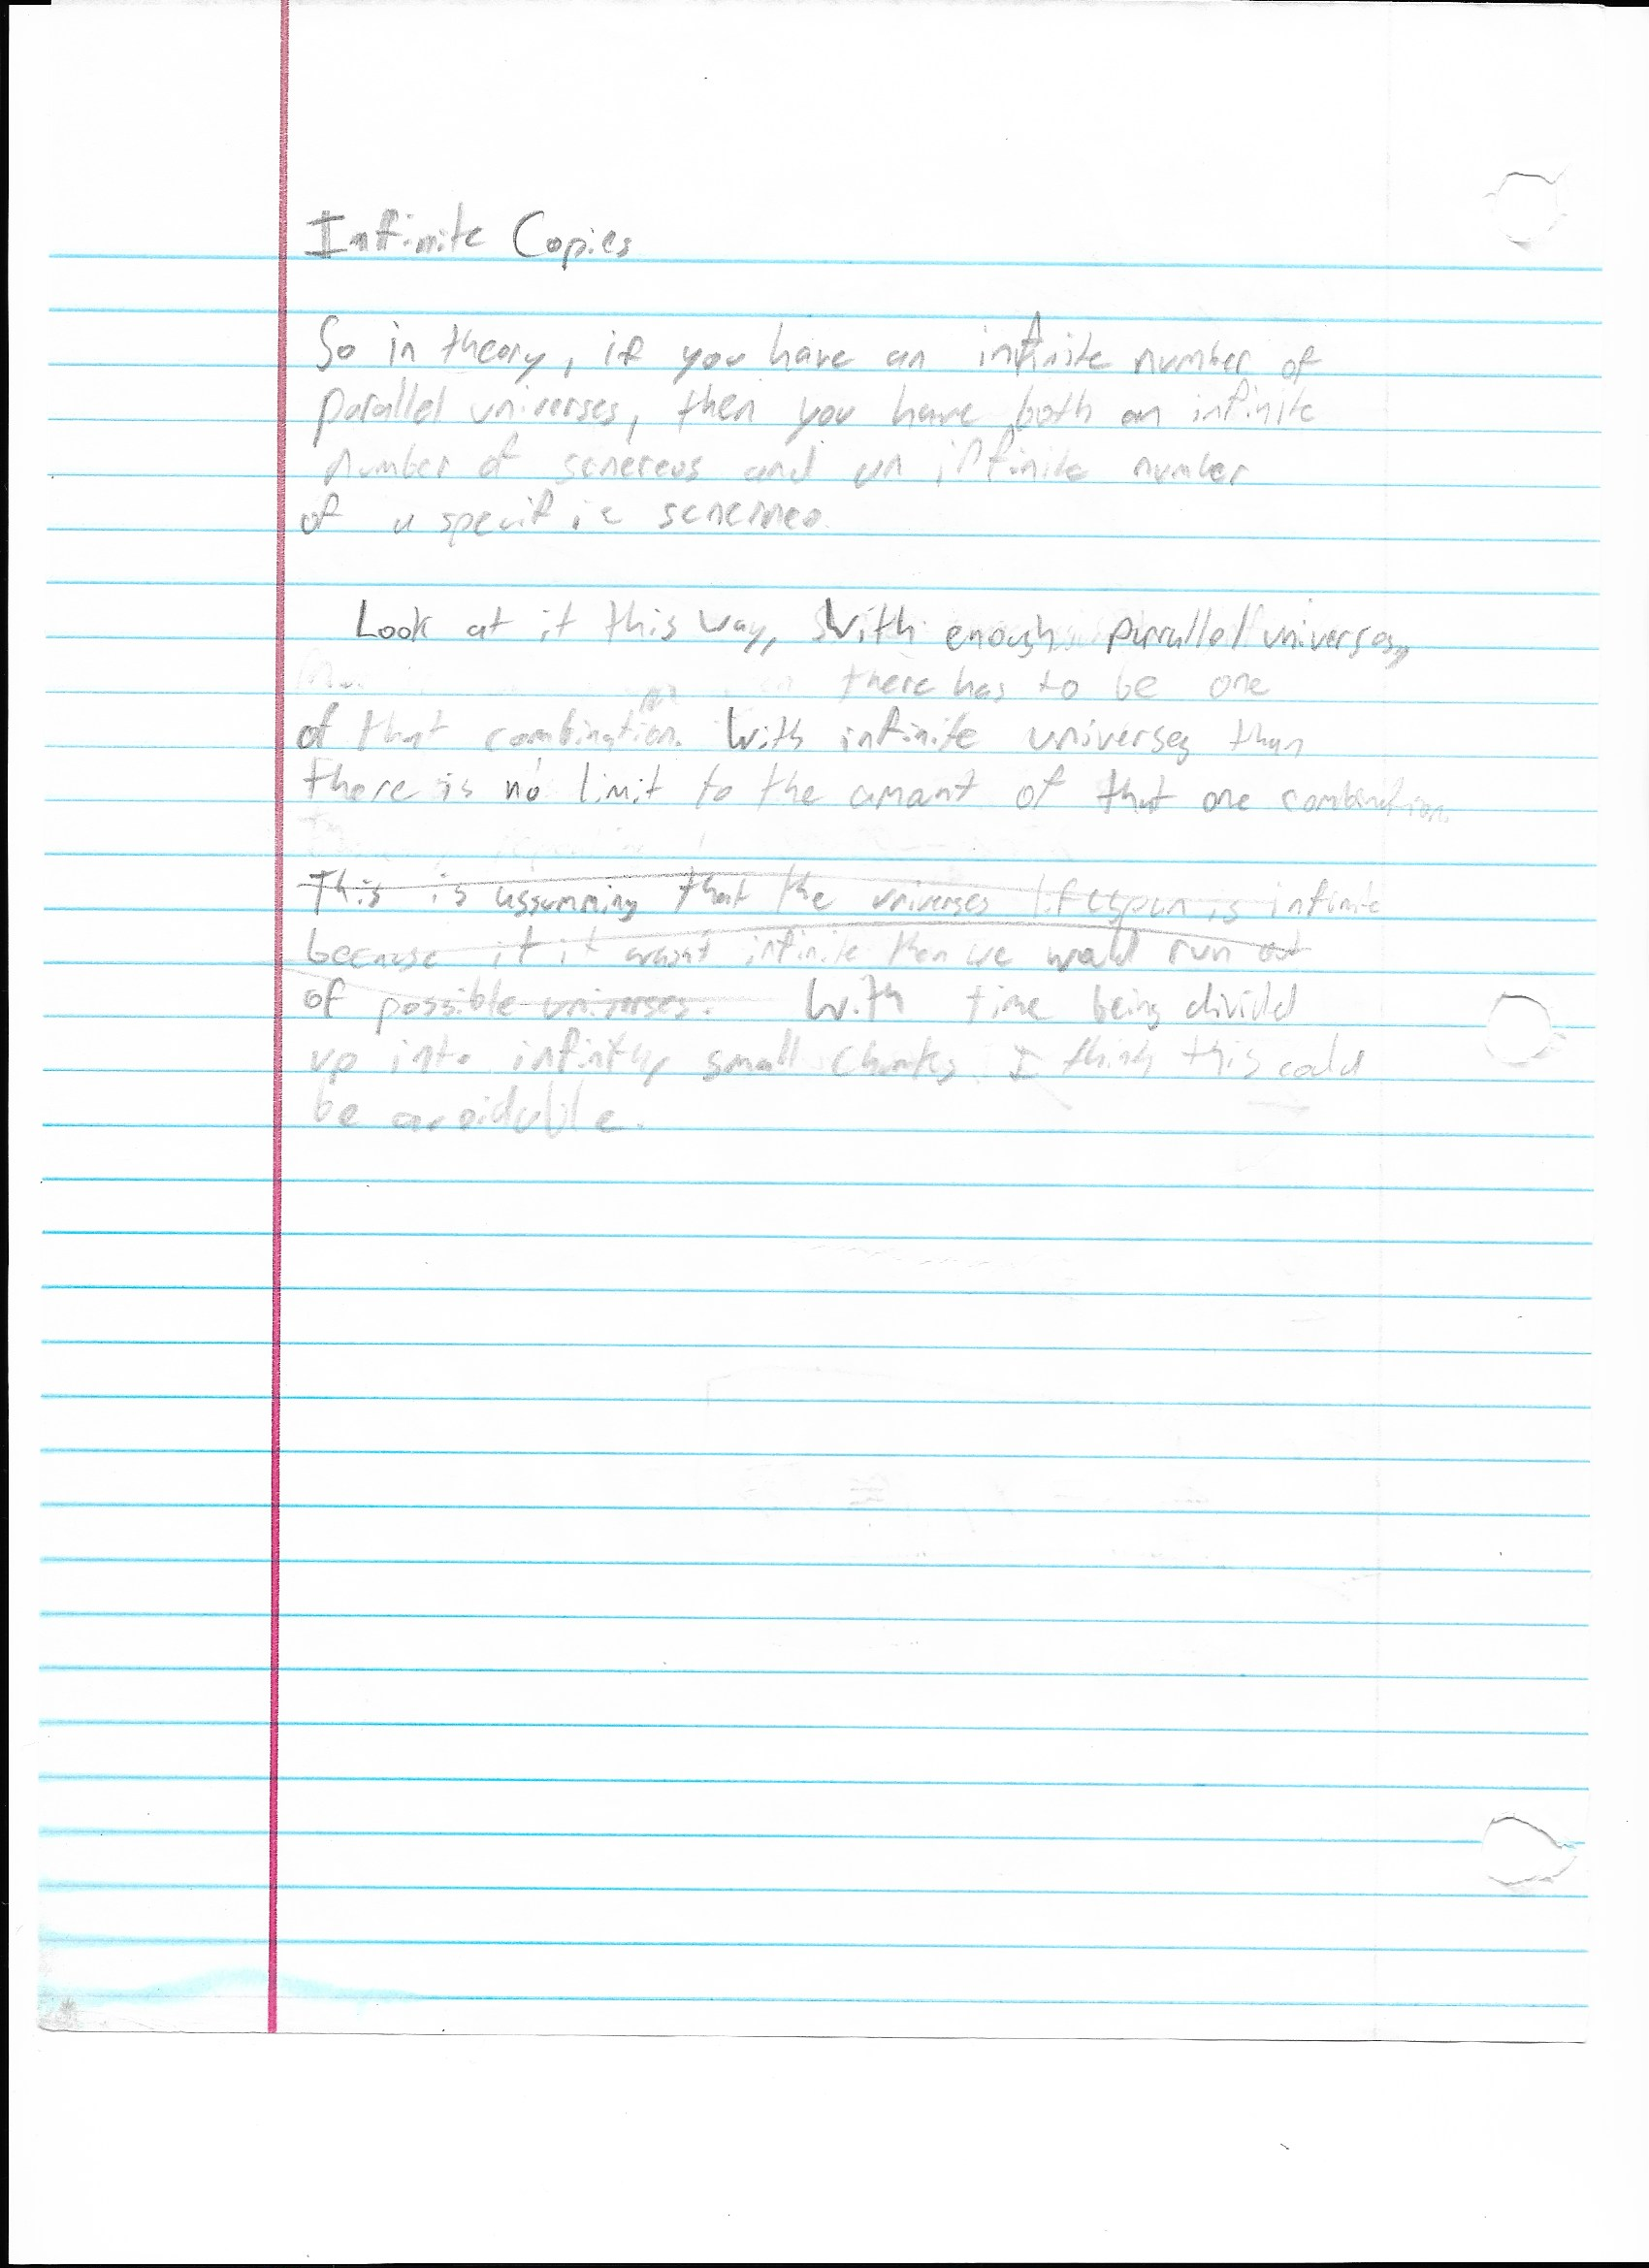 Infinite Copies
So in theory, if you have an infinite number of
parallel universes, then you have both an infinite
number of sénereos and an infinite number
of a specific
Look at it this way, With enough parallel universes,
there has to be one
of that combination. With infinite universes than
there is no limit to the amant of that one combination.
This is assumming that the universes lifespan is infinite
because if it wasnt infinite then we would run out
of possible universes. With time being divided
up into infinity small chunks I think this could
be avoidable.